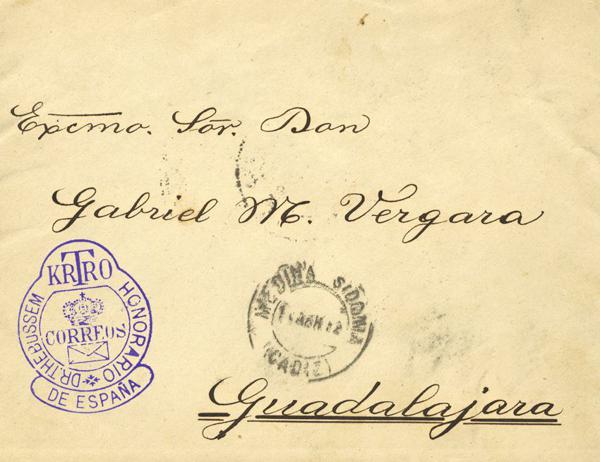 Excmo. Sor. Don
Gabriel M. Vergara
KRTRO
HONORARIO
DR. THEBUSSEM
CORREOS
DE ESPAÑA
MEDINA SIDONIA
(CADIZ)
Guadalajara